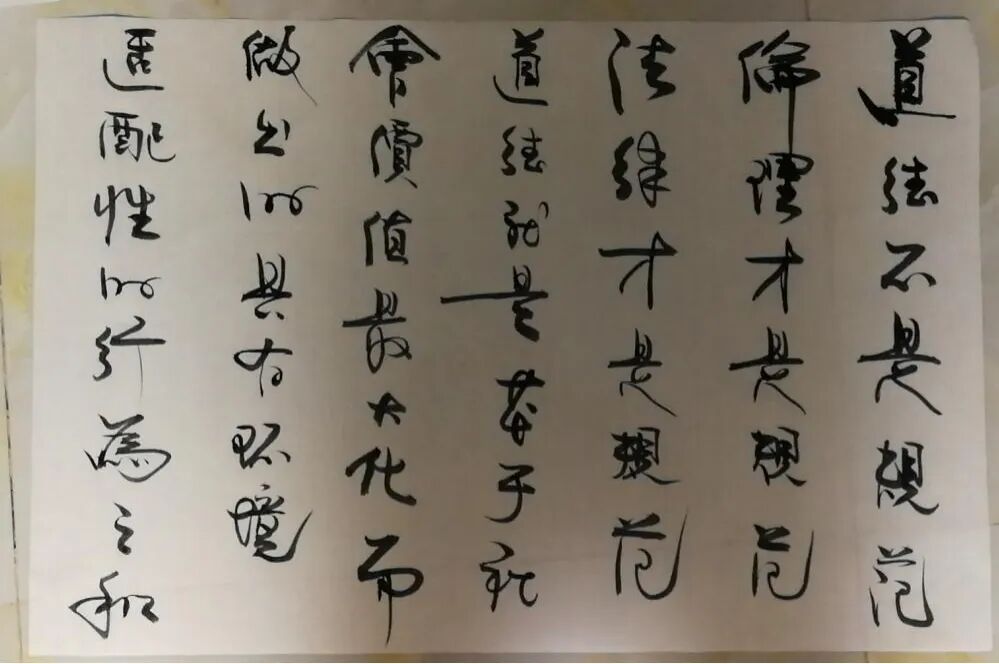 道德不是規范
倫理才是規范
法律才是規范
道德就是基于社
會價值最大化而
做出的具有环境
适配性的行為之和